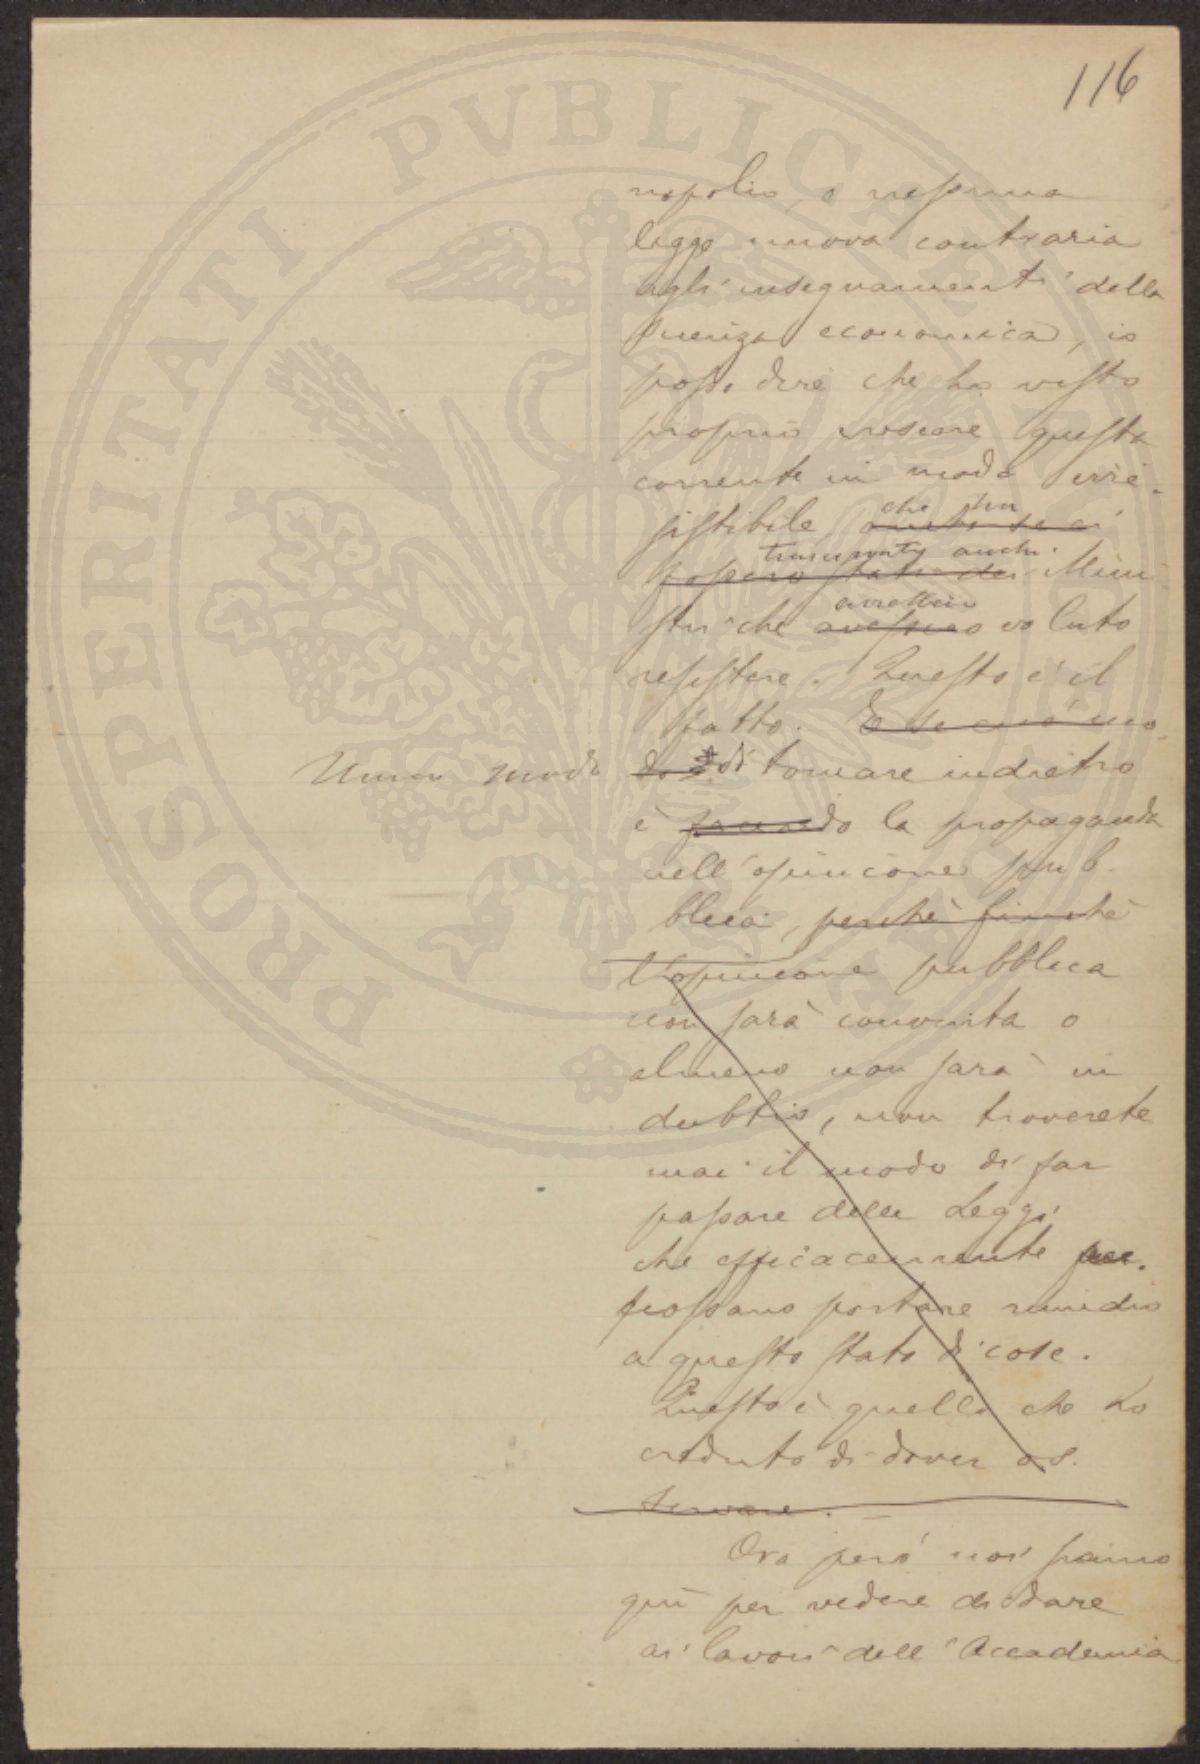 116
nopolio, o nessuna
legge nuova contraria
agli insegnamenti della
scienza economica, io
posso dire che ho visto
proprio crescere questa
corrente in modo irre-
sistibile,
che ha
trascinato anche
fossero stati dei Mini-
stri che avessero voluto
avrebbero
resistere. Questo è il
fatto. E se c'è mo-
Unico modo do di tornare indietro
è facendo la propaganda
nell'opinione pub-
blica, perchè finchè
l'opinione pubblica
non sarà convinta o
almeno non sarà in
dubbio, non troverete
mai il modo di far
passare delle Leggi
che efficacemente
possano portare rimedio
a questo stato di cose.
Questo è quello che ho
creduto di dover os-
servare.
Ora però noi siamo
quì per vedere di dare
ai lavori dell'Accademia
PROSPERITATI PVBLICAE